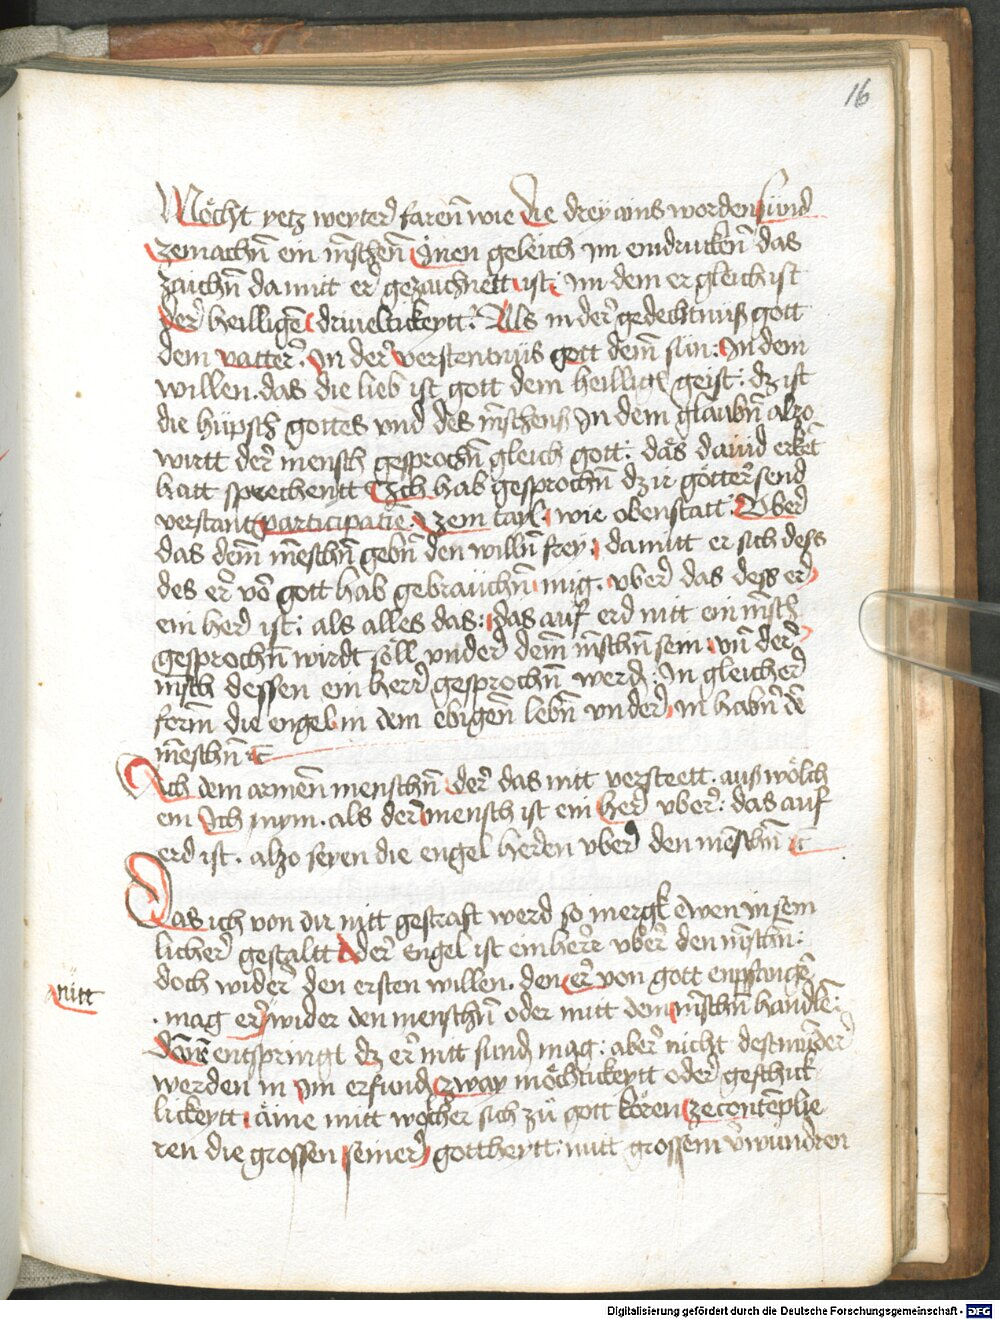 16
Möcht yetz weyter faren wie die drey ains worden sünd
zemachn̄ ein mſchen̄ Jnen geleich im eindrucken̄ das
zaichn̄ da mit er gezaichnett ist: im dem er gleich ist
der heilligē driueltickeytt. Als in der gedechtnüs gott
dem vatter. in der verstentnüs gott dem̄ sün: in dem
willen. das die lieb ist gott dem heillign̄ geist: dz ist
die hüpsch gottes vnd des mſchens in dem glaubn̄ alzo
wirtt der mensch gesprochn̄ gleich gott: das dauid erkēt
hatt sprechentt Ich hab gesprochn̄ dz ir götter send
verstant participatiē. zem tayl. wie obenstatt. Vber
das dem̄ meschn̄ gebn̄ den willn̄ frey. damitt er sich dess
des er vō gott hab gebrauchn̄ mig. vber das dess er
ein her ist: als alles das: das auf erd mitt ein mſch
gesprochn̄ wirdt söll vnder dem̄ mſchn̄ sein. vn̄ der
mſch dessen ein herr gesprochn̄ werd: In gleicher
form̄ die engel in dem ebigen̄ lebn̄ vnder in habn̄ dē
meschn̄ ⁊c
Ach dem armen̄ menschn̄ der das mit versteett. aus wölch
em Ich mym. als der mensch ist ein her vber: das auf
erd ist. alzo seyen die engel herren vber den mēschn̄ ⁊c
Das ich von dir nitt gestraft werd so mergk ewen in sem
licher gestaltt der Engel ist ein herr vber den mſchn̄:
doch wider den ersten willen. den er von gott enpfangē
nitt
. mag er wider den menschn̄ oder mitt dem mſchn̄ handlē:
entspringt dz er nitt sünd mag: aber nicht destminder
werden in im erfund zway möchtickeytt oder geschick
lickeytt. aine mitt wölcher sich zü gott kören zecontēplie
ren die grossen seiner gottheytt. mitt grossem v̄wundren
Digitalisierung gefördert durch die Deutsche Forschungsgemeinschaft - DFG